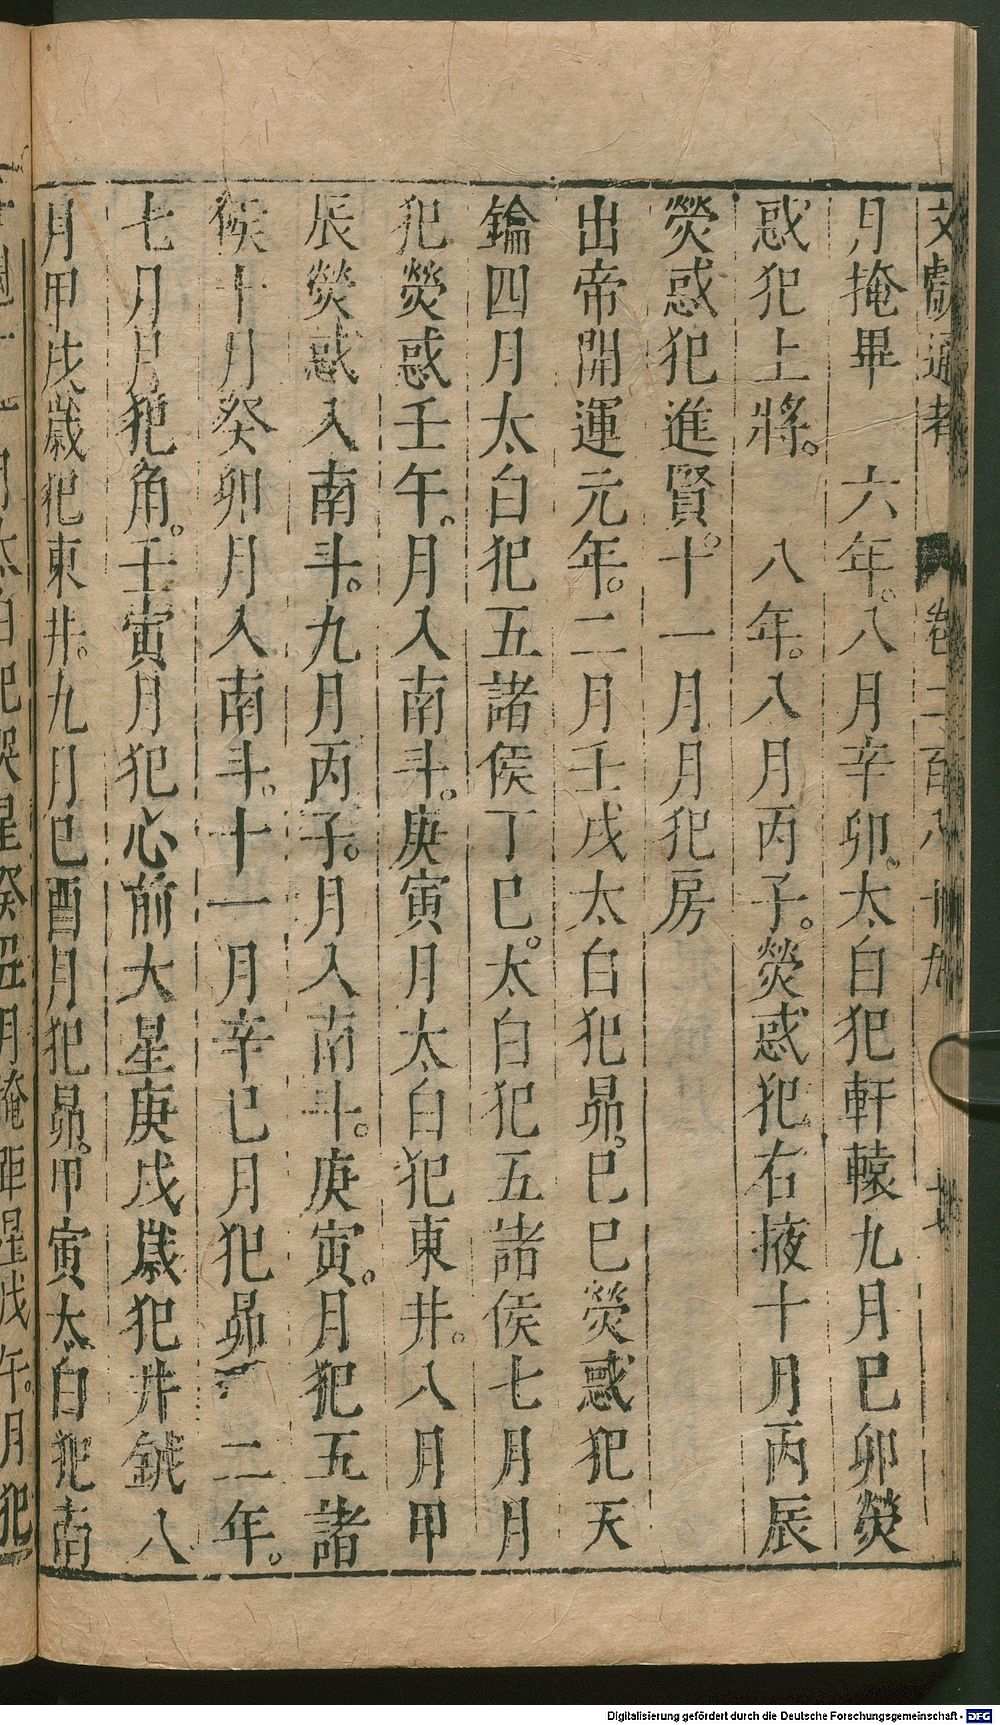 文獻通考 卷二百八十九
月掩畢 六年。八月辛卯。太白犯軒轅九月己卯熒
惑犯上將。 八年。八月丙子。熒惑犯右掖十月丙辰
熒惑犯進賢。十一月月犯房
出帝開運元年。二月壬戌太白犯昴。己巳熒惑犯天
鑰四月太白犯五諸侯丁巳。太白犯五諸侯七月月
犯熒惑壬午。月入南斗。庚寅月太白犯東井。八月甲
辰熒惑入南斗。九月丙子。月入南斗。庚寅。月犯五諸
侯十月癸卯月入南斗。十一月辛巳月犯昴 二年。
七月月犯角。壬寅月犯心前大星庚戌歲犯井鉞八
月甲戌歲犯東井。九月己酉月犯昴。甲寅太白犯南
太白犯哭星癸丑月掩距星戊午。月犯
Digitalisierung gefördert durch die Deutsche Forschungsgemeinschaft - DFG